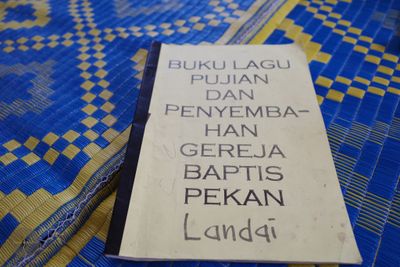 BUKU LAGU
PUJIAN
DAN
PENYEMBA-
HAN
GEREJA
BAPTIS
PEKAN
Landai